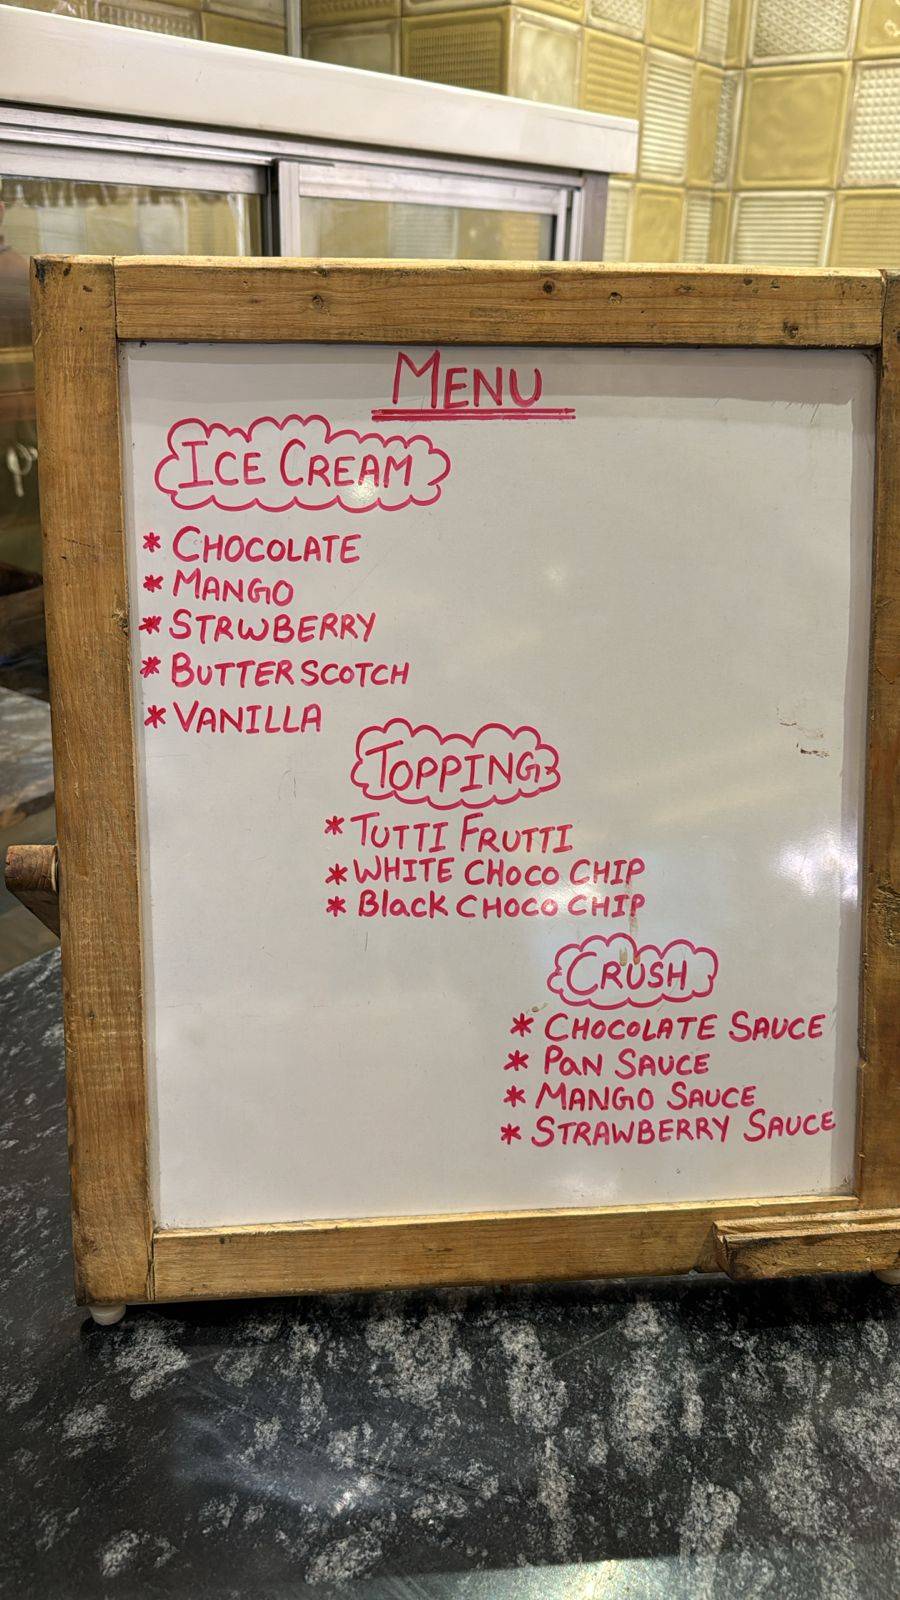 MENU
ICE CREAM
* CHOCOLATE
* MANGO
* STRWBERRY
* BUTTER SCOTCH
* VANILLA
TOPPING:
* TUTTI FRUTTI
* WHITE CHOCO CHIP
* Black CHOCO CHIP
CRUSH
* CHOCOLATE SAUCE
* PaN SAUCE
* MANGO SAUCE
* STRAWBERRY SAUCE